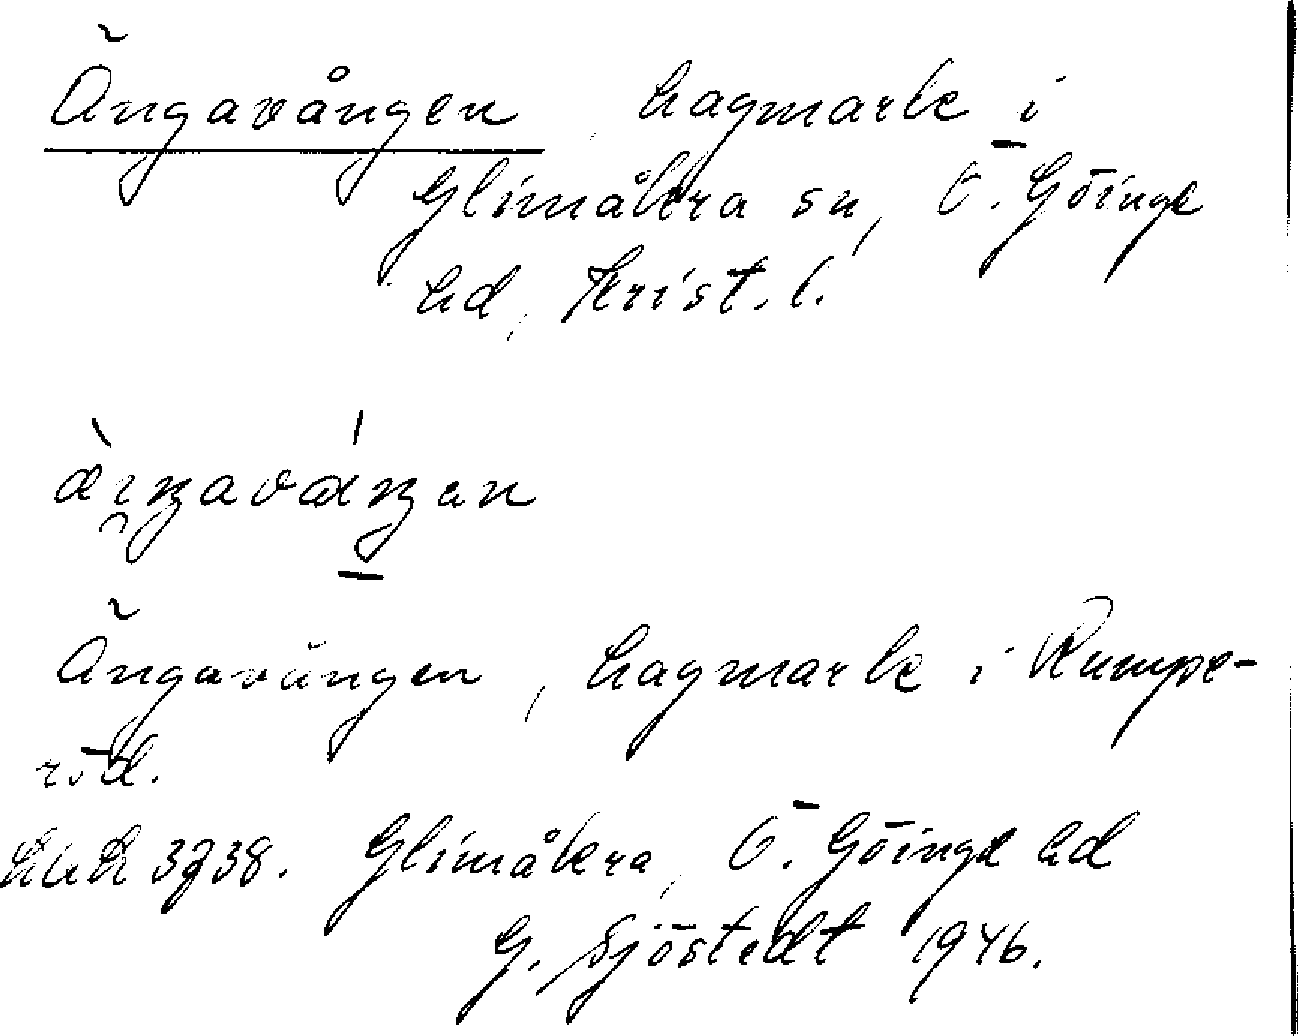 Ängavången, hagmark i
Glimåkra sn, Ö. Göinge
hd, Krist. l.
Ängavången, hagmark i Rumpe-
röd.
3738. Glimåkra, Ö. Göinge hd
G. Sjöstedt 1946.